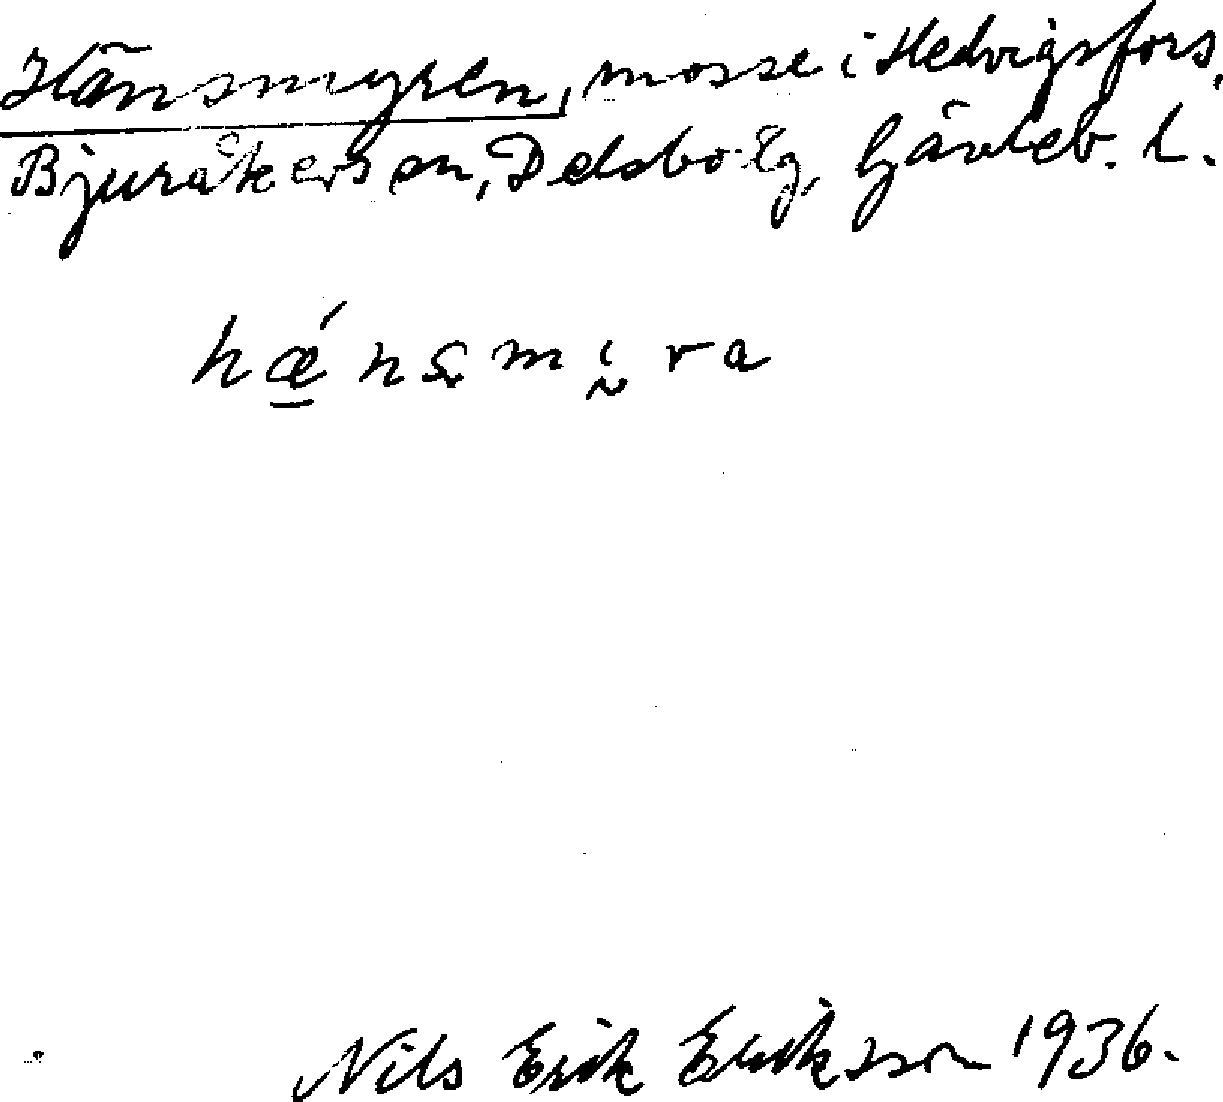 Hänsmyren, mosse i Hedvigsfors,
Bjuråkers sn, Delsbo tg, Gävleb. l.
hǽnsmira
Nils Erik Eriksson 1936.